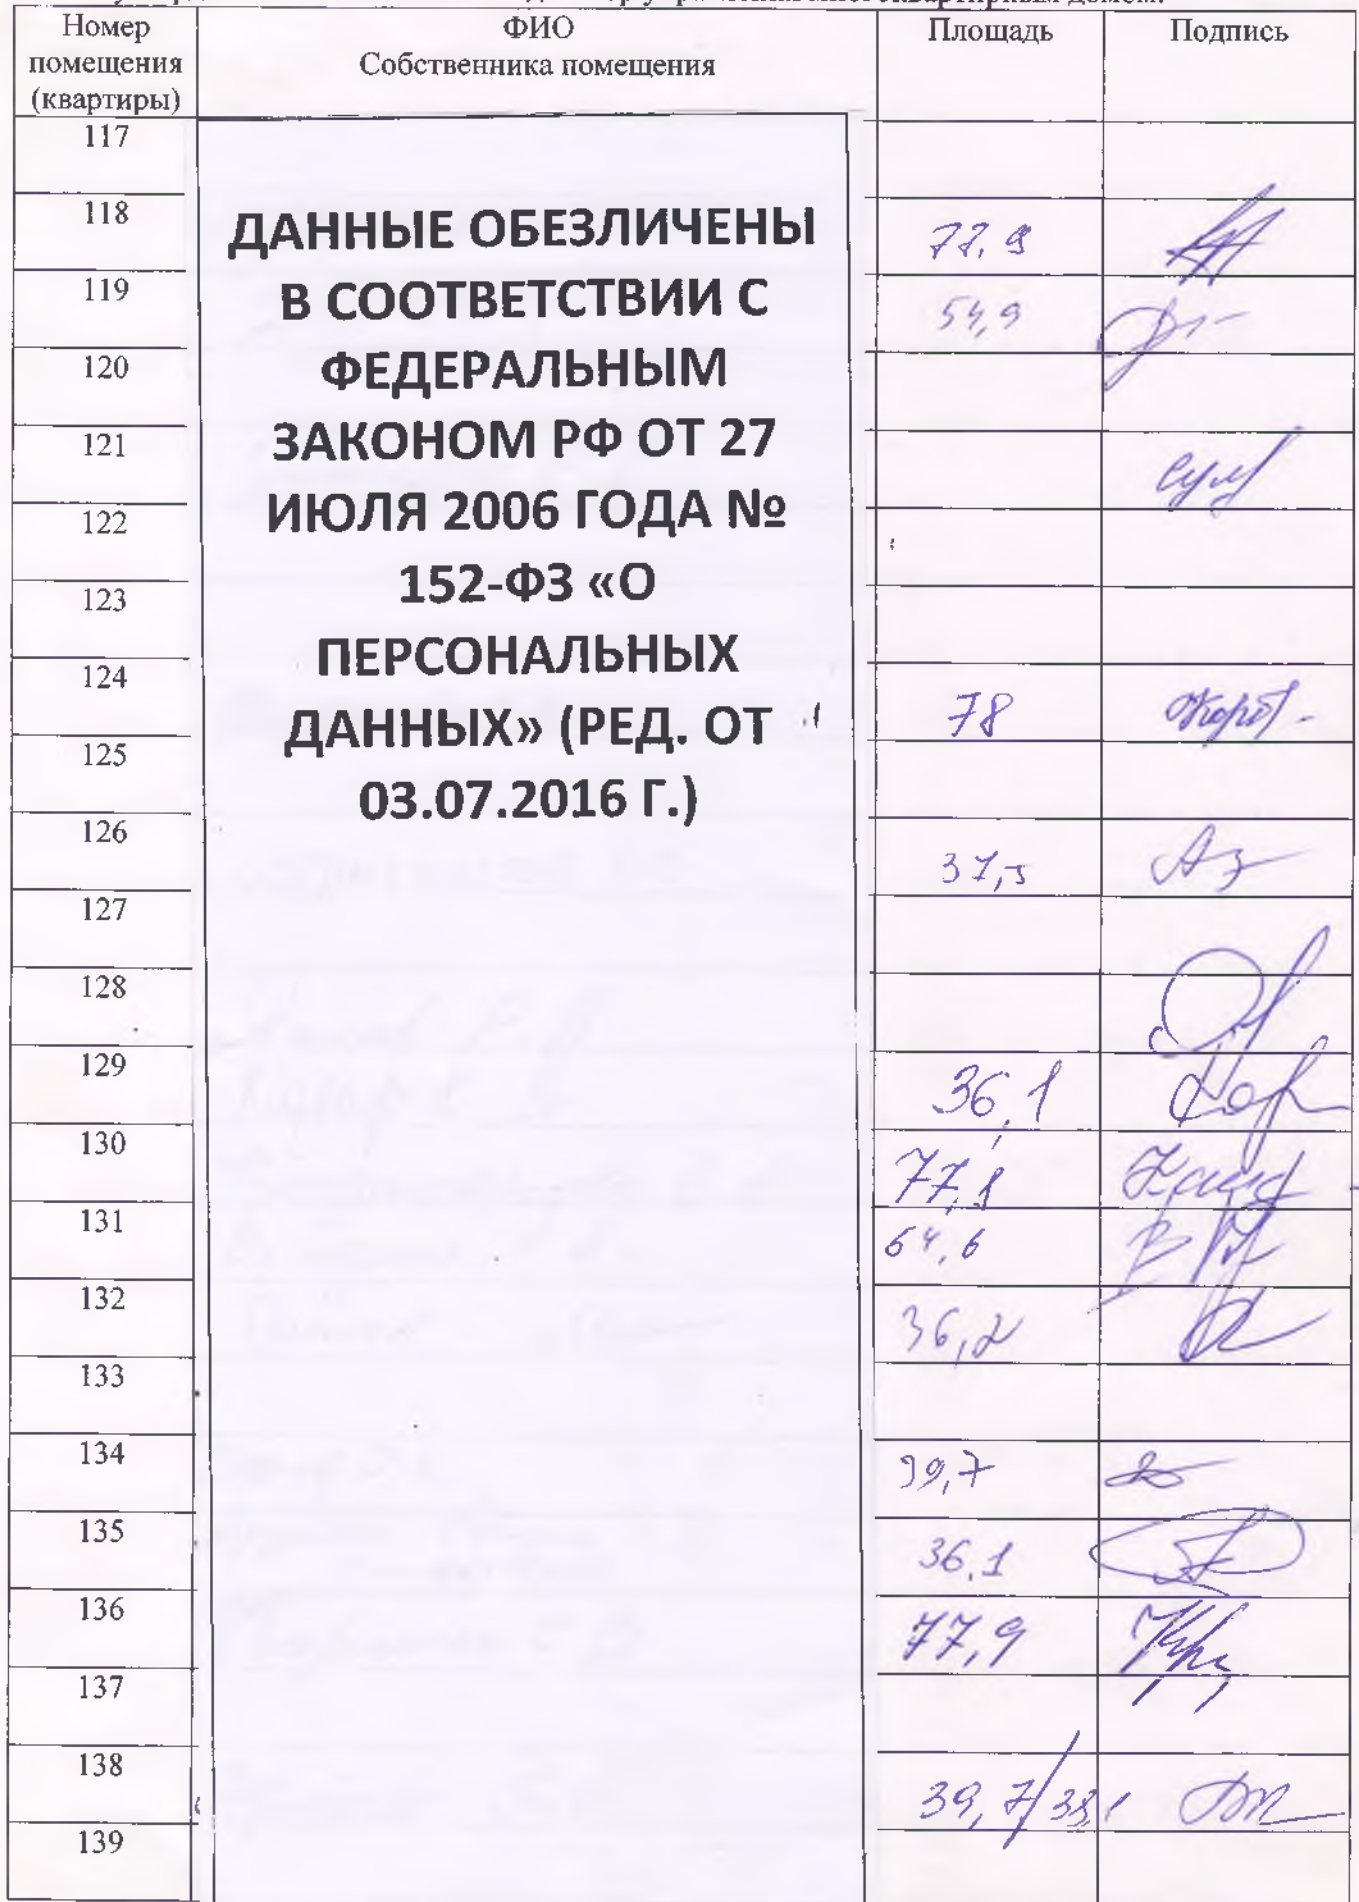 Номер помещения (квартиры) ФИО Собственника помещения Площадь Подпись
117
ДАННЫЕ ОБЕЗЛИЧЕНЫ
В СООТВЕТСТВИИ С
ФЕДЕРАЛЬНЫМ
ЗАКОНОМ РФ ОТ 27
ИЮЛЯ 2006 ГОДА №
152-ФЗ «О
ПЕРСОНАЛЬНЫХ
ДАННЫХ» (РЕД. ОТ
03.07.2016 Г.)
118 77,9
119 54,9
120
121
122
123
124 78
125
126 37,5
127
128
129 36,1
130 77,1
131 64,6
132 36,2
133
134 39,7
135 36,1
136 77,9
137
138 39,7/38,1
139